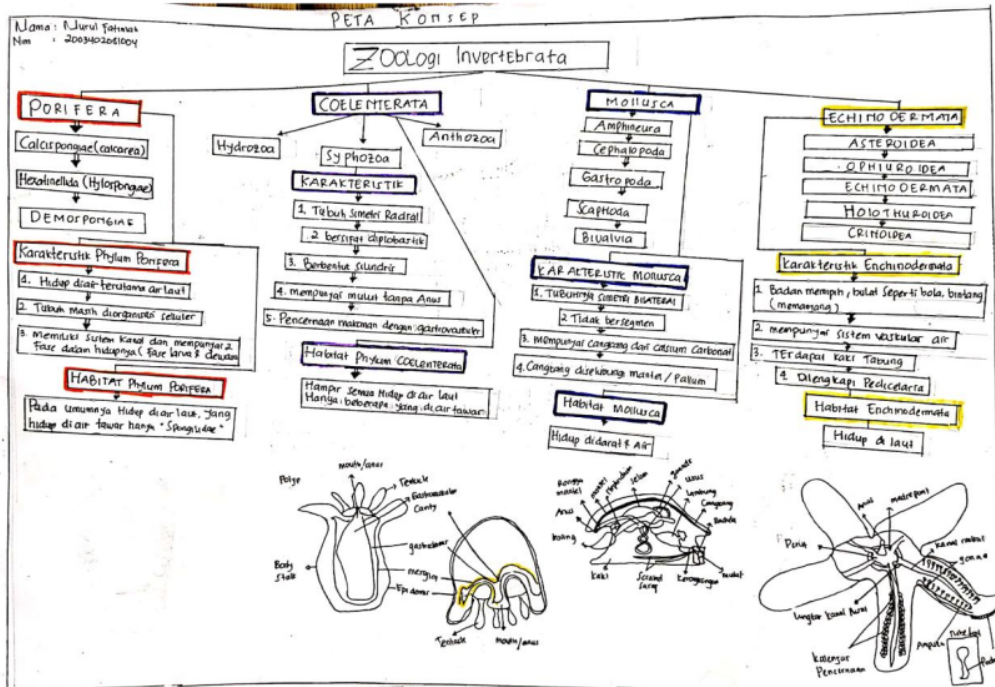 PETA KONSEP
Nama : Nurul Fatimah
Nim : 2003402051004
ZOOLOGI Invertebrata
PORIFERA
Calcispongiae (calcarea)
Hexatinellida (Hylospongiae)
DEMOSPONGIAE
Karakteristik Phylum PORIFERA
1. Hidup diair terutama air laut
2. Tubuh Masih diorganisasi seluler
3. Memiliki sistem Kanal dan mempunyai 2
Fase dalam hidupnya (Fase larva & dewasa
HABITAT Phylum PORIFERA
Pada umumnya Hidup di air laut, yang
hidup di air tawar hanya "Spongilidae"
COELENTERATA
Hydrozoa
Syphozoa
Anthozoa
KARAKTERISTIK
1. Tubuh simetri Radial
2 bersifat diplobastik
3. Berbentuk silindris
4. mempunyai mulut tanpa Anus
5. Pencernaan makanan dengan gastrovaskuler
Habitat Phylum COELENTERATA
Hampir semua Hidup di air laut
Hanya beberapa yang di air tawar
MOLLUSCA
Amphineura
Cephalopoda
Gastropoda
Scaphoda
Bivalvia
KARAKTERISTIK MOLLUSCA
1. TUBUHNYA SIMETRI BILATERAL
2 Tidak bersegmen
3. mempunyai Cangkang dari calsium Carbonat
4. Cangkang diselubungi mantel / Palium
Habitat Mollusca
Hidup didarat & Air
ECHINODERMATA
ASTEROIDEA
OPHIUROIDEA
ECHINODERMATA
HOLOTHUROIDEA
CRINOIDEA
Karakteristik Enchinodermata
1. Badan memipih, bulat seperti bola, bintang
(memanjang)
2. mempunyai sistem vaskular air
3. Terdapat kaki Tabung
4. Dilengkapi Pedicelaria
Habitat Enchinodermata
Hidup di laut
Polyp
mouth/anus
Tentacle
Gastrovaskular
Cavity
Body
Stalk
gastrodermis
mesoglea
Epidermis
Tentacle
mouth/anus
Rongga
mantel
mantel
selom
gonade
usus
Lambung
Cangkang
Radula
Anus
Insang
Kaki
Saraf
Kerongkongan
mulut
Anus
madreporit
kanal radial
gonad
Ampula
Kelenjar
Pencernaan